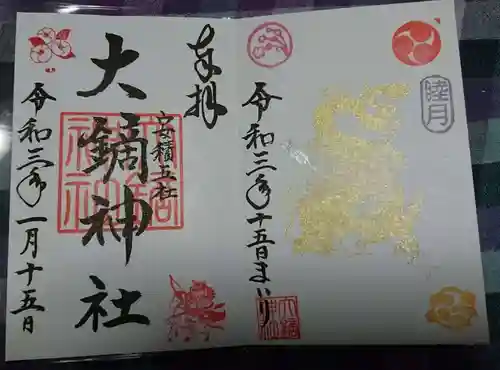 睦月
令和三年十五日まいり
奉拝
安積五社
大鏑神社
令和三年一月十五日